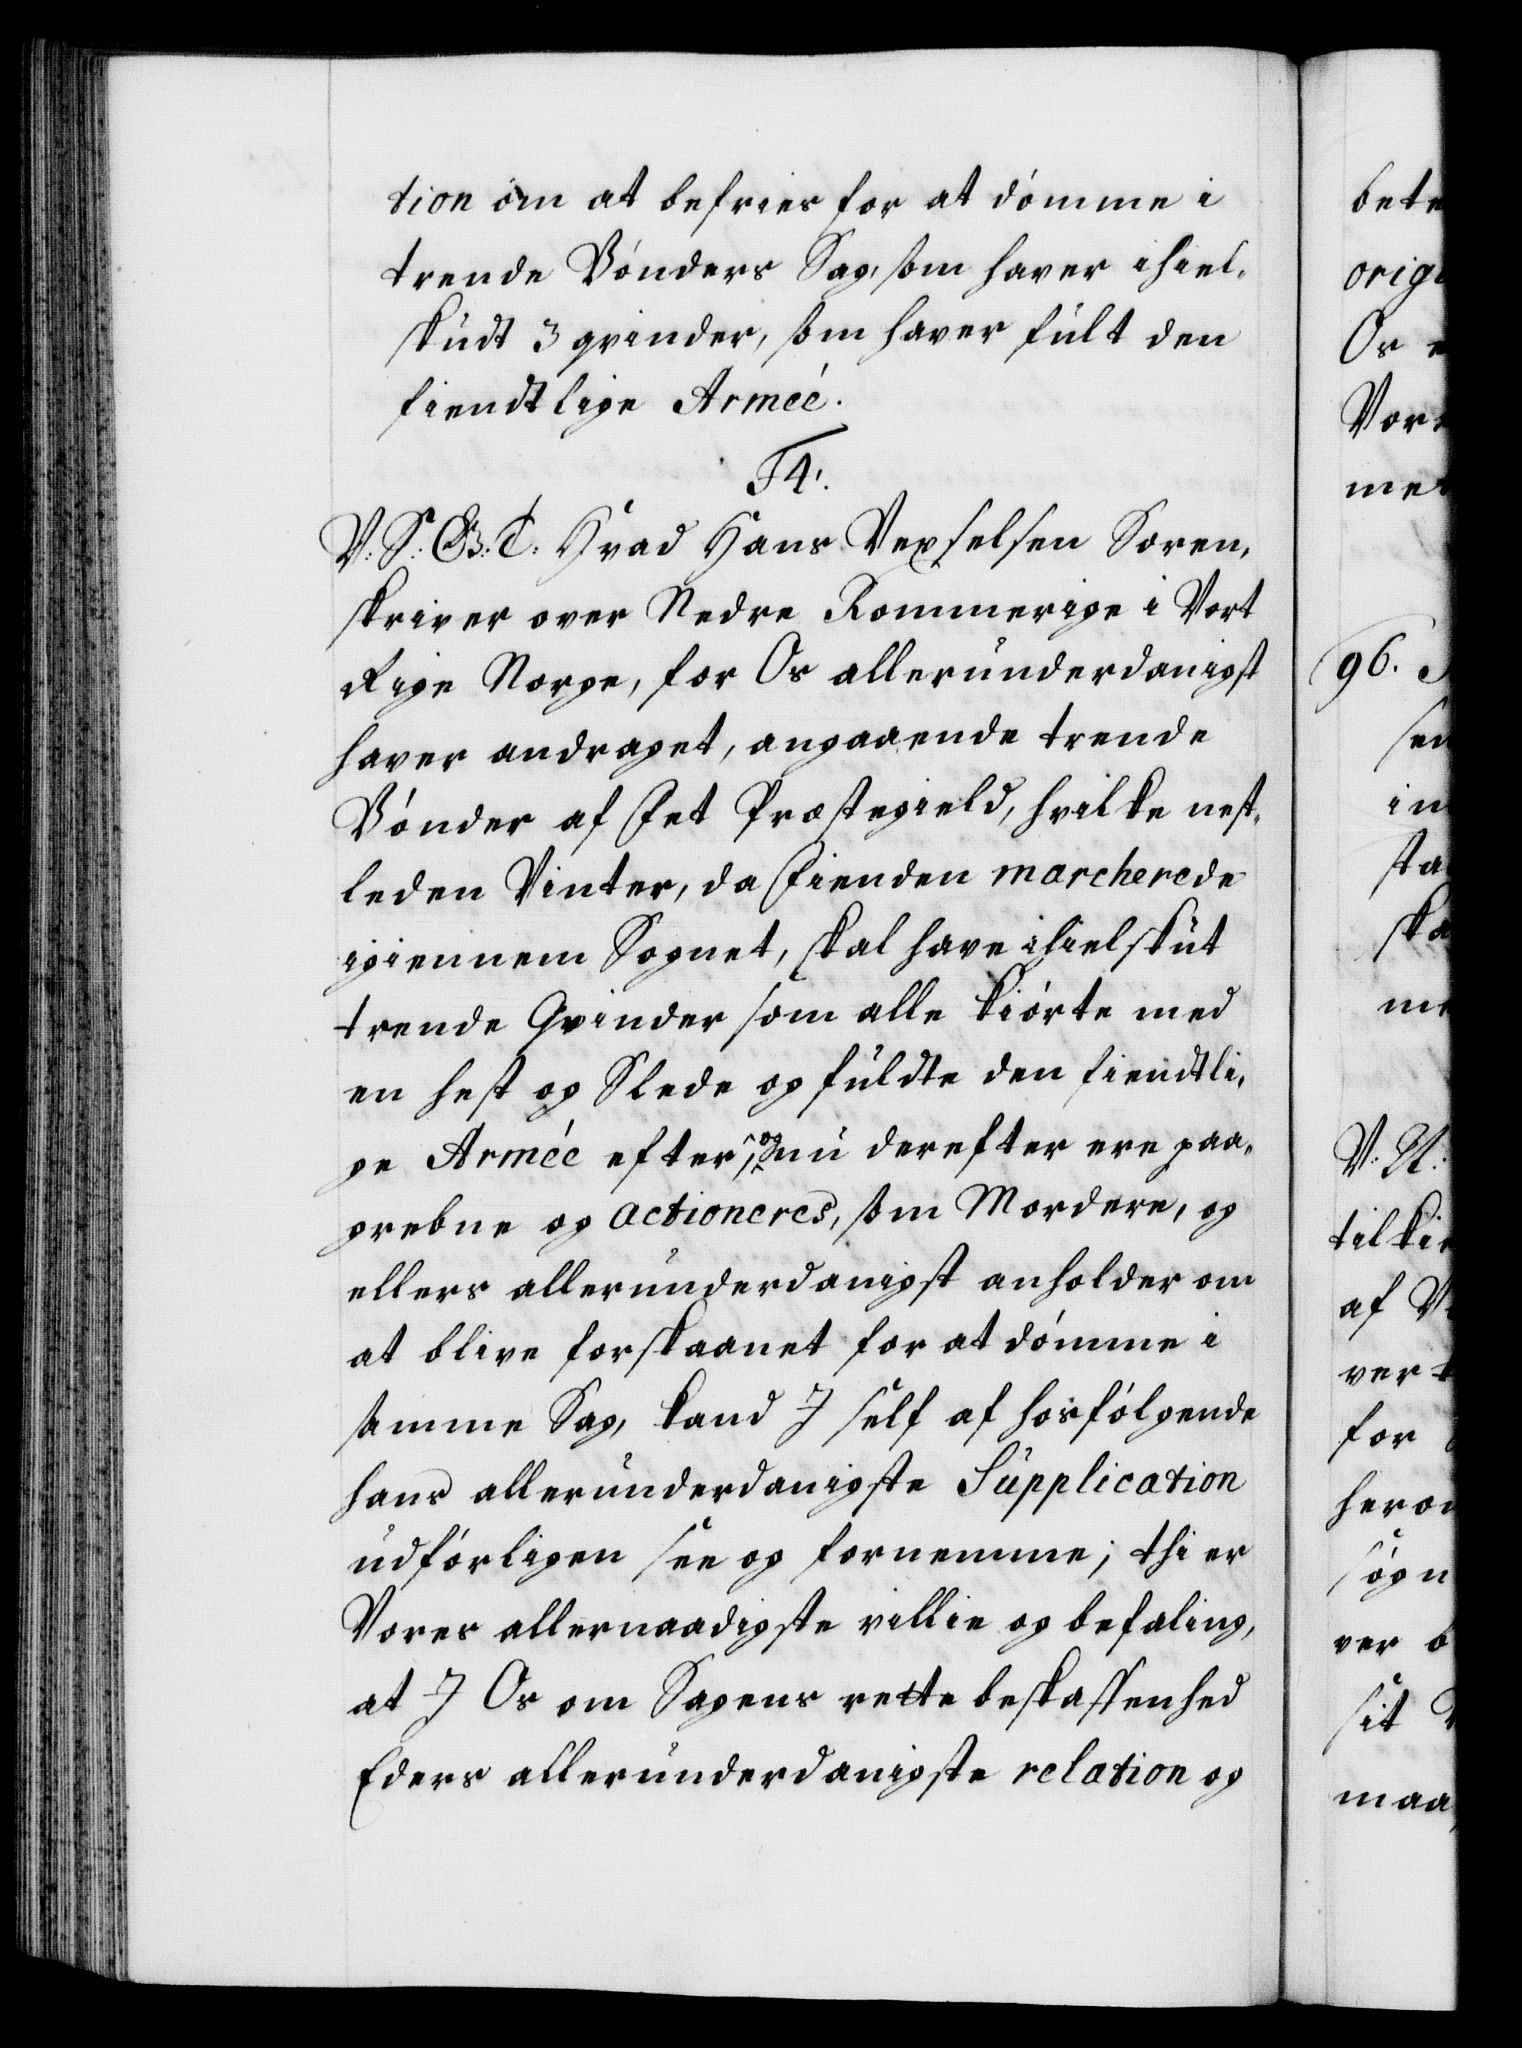 tion om at befries for at dómme i
trende Bónders Sag, som haver ihiel-
skudt 3 qvinder, som haver fult den
fiendtlige Armeé.
F4.
V: S: G: T: Hvad Hans Vexselsen Soren-
skriver over Nedre Rommerige i Vort
Rige Norge, for Os allerunderdanigst
haver andraget, angaaende trende
Bónder af Fet Præstegield, hvilke nest-
leden Vinter, da Fienden marcherede
igiennem Sognet, skal have ihielskut
trende Qvinder som alle kiórte med
en hest og Slede og fuldte den fiendtli-
ge Armée efter, og nu derefter ere paa-
grebne og actioneres, som Mordere, og
ellers allerunderdanigst anholder om
at blive forskaanet for at dómme i
samme Sag, kand I self af hosfólgende
hans allerunderdanigste Supplication
udfórligen see og fornemme; thi er
Vores allernaadigste villie og befaling,
at I Os om Sagens rette beskaffenhed
Eders allerunderdanigste relation og
bete
orig
Os
Vor
me
96.
sen
in
sta
ska
me
V: N:
tilkie
af V
ver
for
heron
sógn
ver b
sit
maa